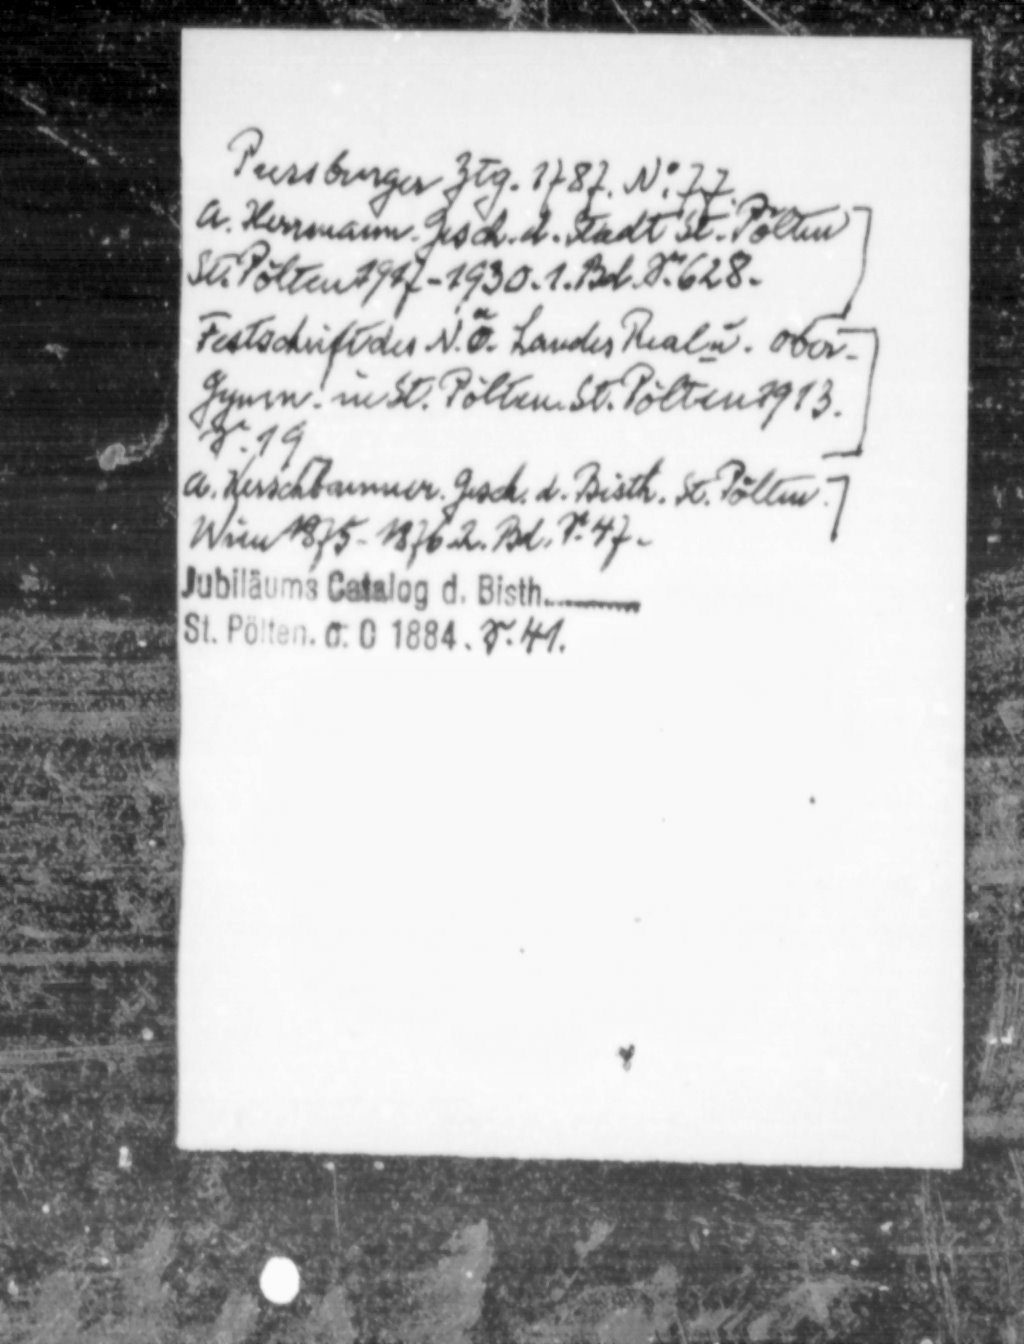 Pressburger Ztg. 1787. No. 77.
A. Herrmann. Gesch. d. Stadt St. Pölten
St. Pölten 1917-1930. 1. Bd. S. 628.-
Festschrift des N. Ö. Landes Real u. Ober-
Gymn. in St. Pölten. St. Pölten 1913.
S. 19
A. Kerschbaumer. Gesch. d. Bisth. St. Pölten.
Wien 1875-1876. 2. Bd. S. 47.-
Jubiläums Catalog d. Bisth.
St. Pölten. o. O 1884. S. 41.